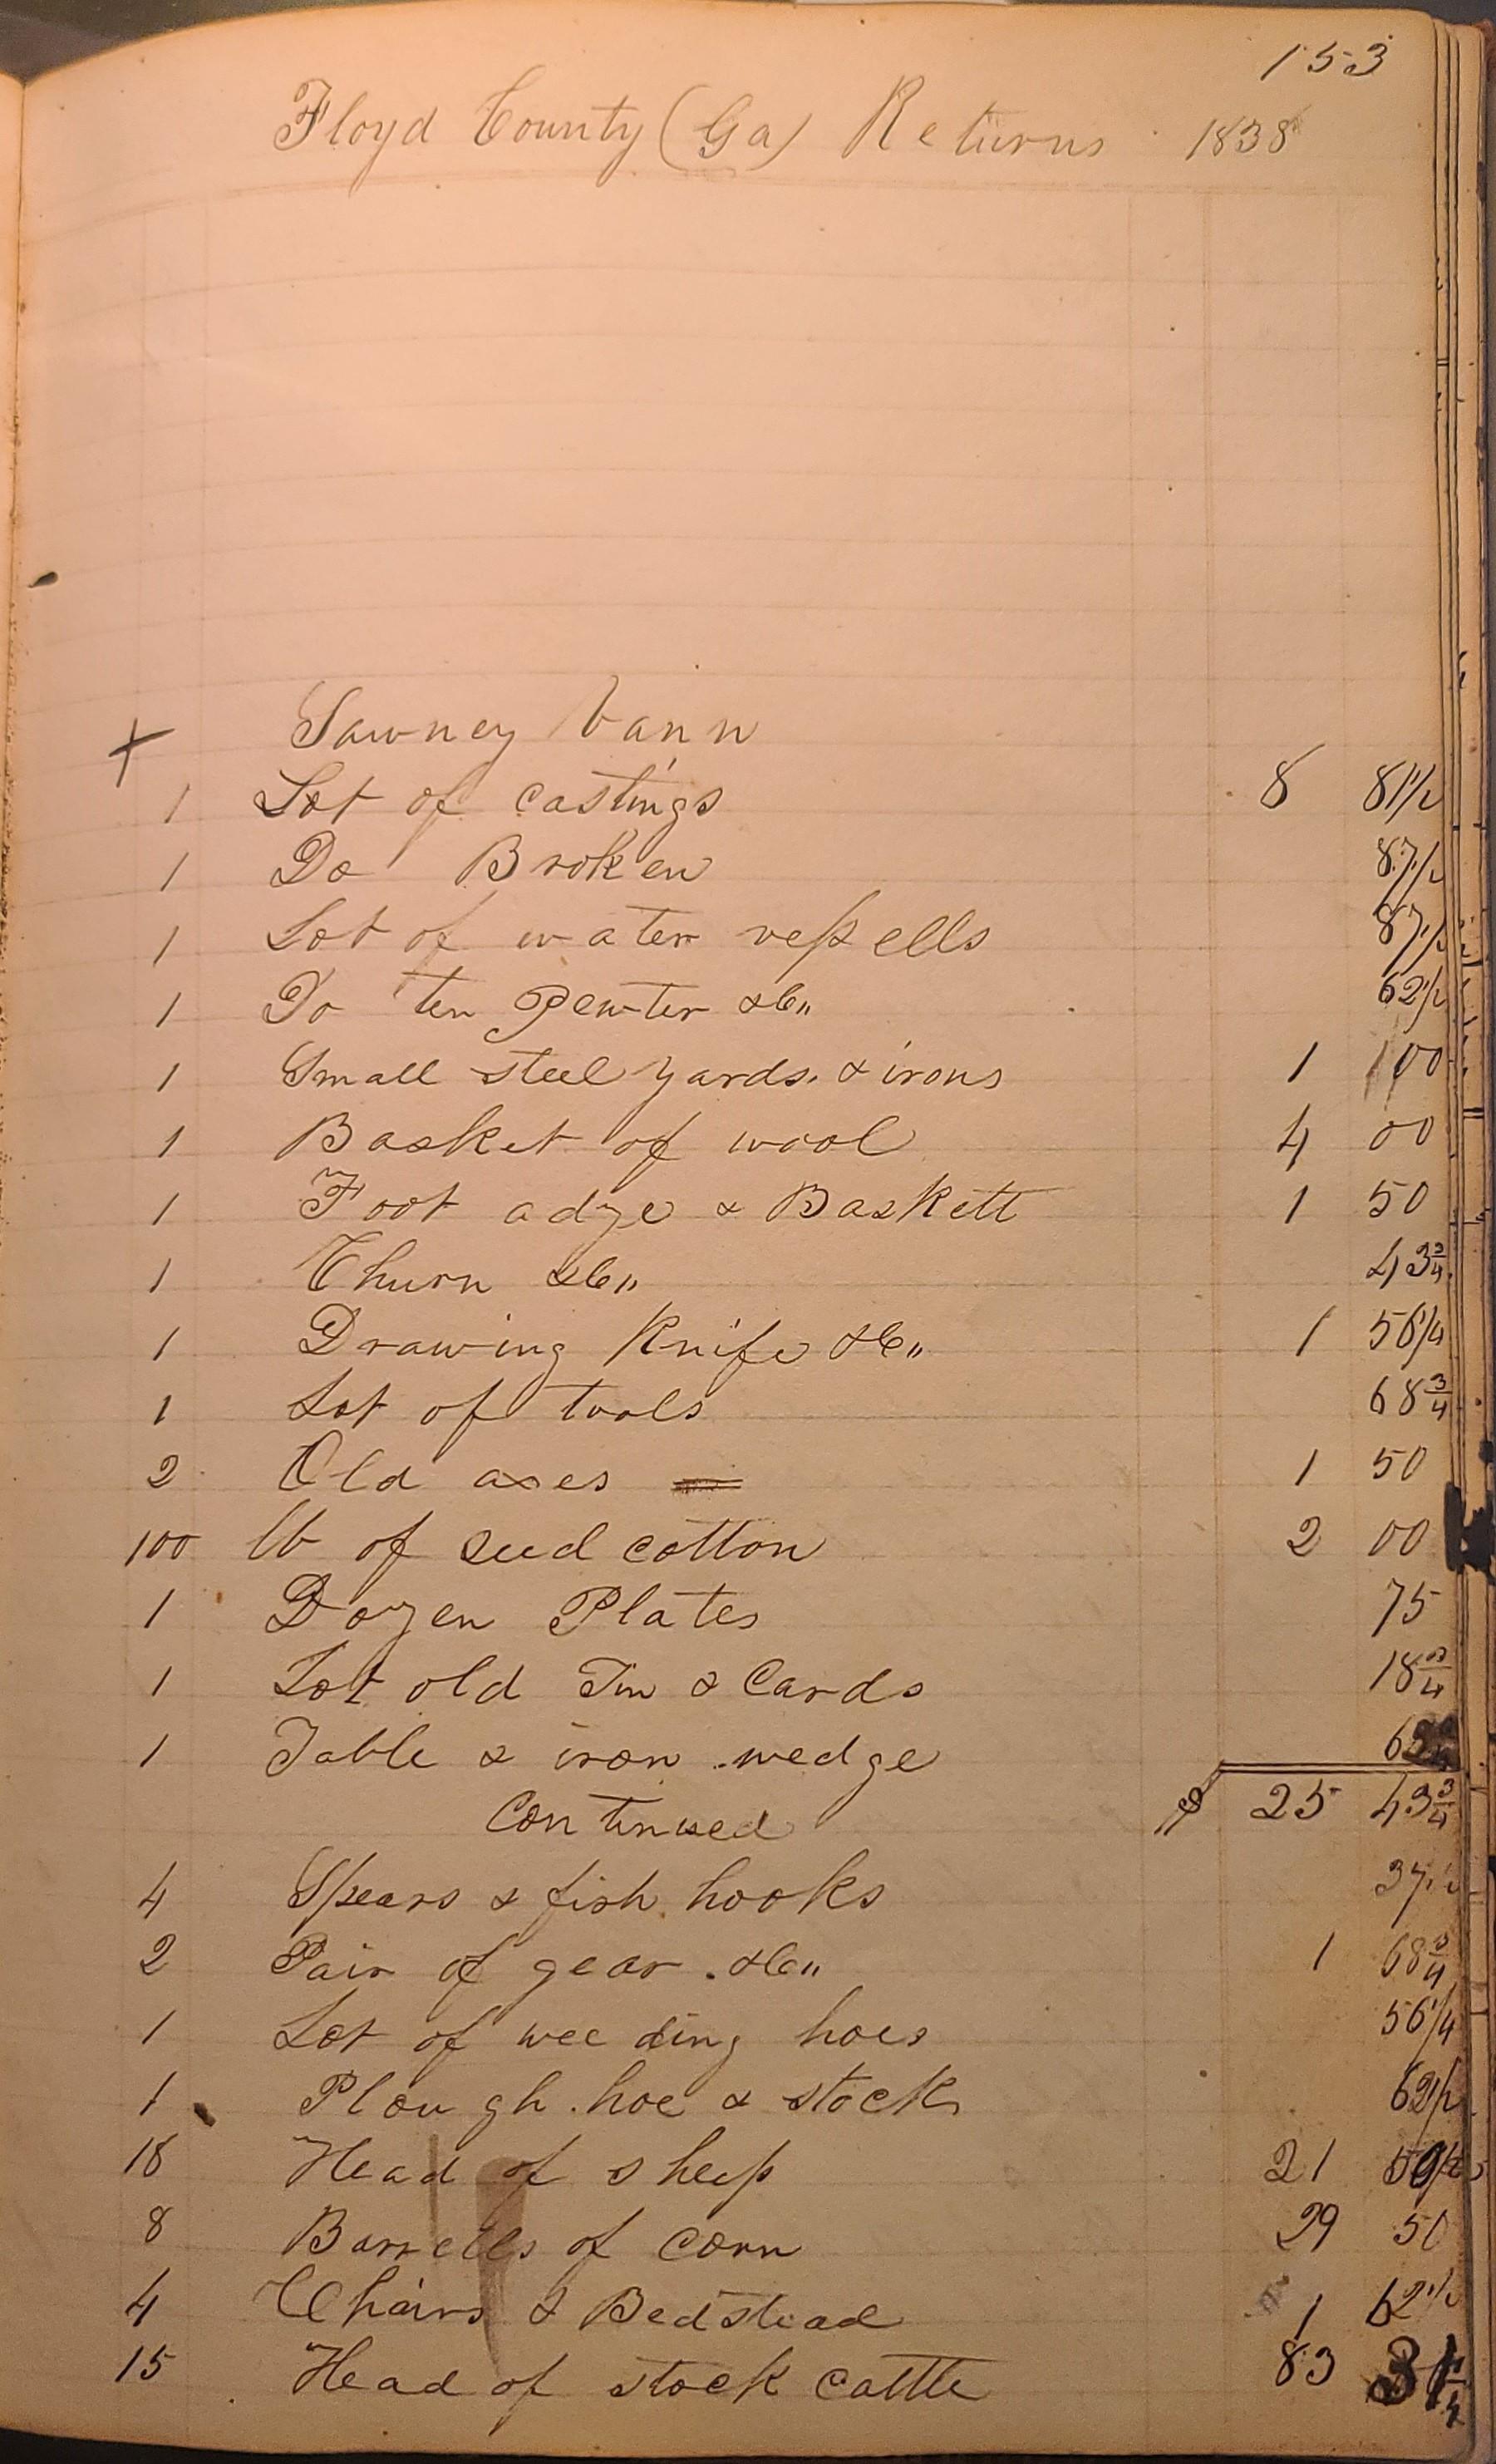 153
Floyd County (Ga) Returns 1838
Sawney Vann
1 Lot of castings 8 81 1/2
1 Do Broken 87 1/2
1 Lot of water vessells 87 1/2
1 Do ten Pewter &c" 62 1/2
1 Small steel yards. & irons 1 00
1 Basket of wool 4 00
1 Foot adze & Baskett 1 50
1 Churn &c" 43 3/4
1 Drawing Knife &c" 1 56 1/4
1 Lot of tools 68 3/4
2 Old axes 1 50
100 lb of seed cotton 2 00
1 Dozen Plates 75
1 Lot old Tin & Cards 18 3/4
1 Table & iron wedge
Continued $ 25 43 3/4
4 Spears & fish hooks 37 1/2
2 Pair of gear . &c" 1 68 3/4
1 Lot of weeding hoes 56 1/4
1 Plough hoe & stock 62 1/2
18 Head of sheep 21
8 Barrells of corn 29 50
4 Chairs & Bedstead 1 62 1/2
15 Head of stock cattle 83